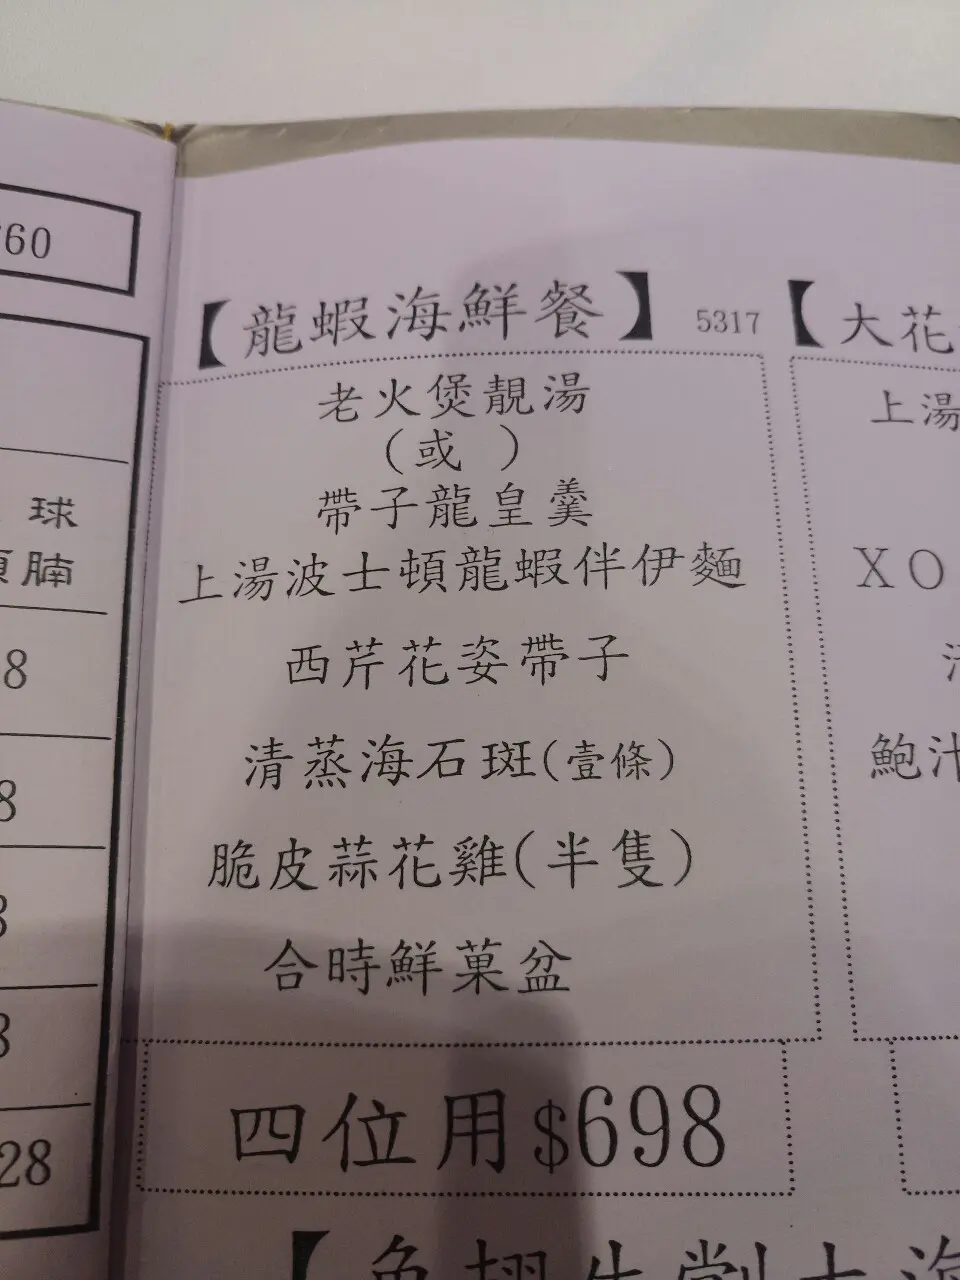 60
球
腩
8
8
8
8
28
【龍蝦海鮮餐】 5317
老火煲靚湯
(或 )
帶子龍皇羹
上湯波士頓龍蝦伴伊麵
西芹花姿帶子
清蒸海石斑(壹條)
脆皮蒜花雞(半隻)
合時鮮菓盆
四位用$698
【大花
上湯
XO
鮑汁
【魚翅